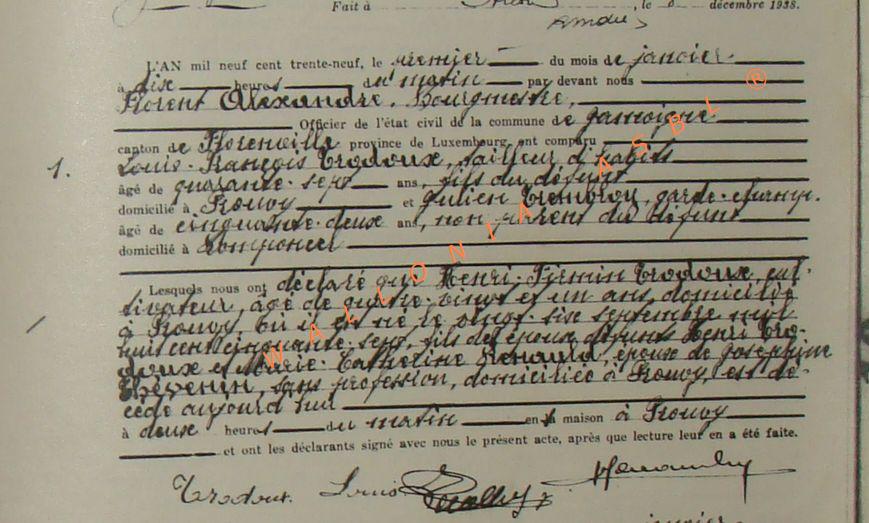 Fait à le décembre 1938.
L'AN mil neuf cent trente-neuf, le premier du mois de janvier
à dix heures du matin par devant nous
Florent Alexandre, Bourgmestre,
Officier de l'état civil de la commune de Jamoigne
canton de Florenville province de Luxembourg, ont comparu
1. Louis François Trodoux, tailleur d'habits
âgé de quarante-sept ans, fils du défunt
domicilié à Prouvy et Julien garde-champ.
âgé de cinquante-deux ans, non parent du défunt
domicilié à Romponcel
Lesquels nous ont déclaré que Henri Firmin Trodoux, cul-
tivateur, âgé de quatre-vingt et un ans, domicilié
à Prouvy, où il est né le vingt-six septembre mil
huit cent cinquante-sept, fils des époux défunts Henri Tro-
doux et Marie-Catherine Renauld, époux de Joséphine
Thévenin, sans profession, domiciliée à Prouvy, est dé-
cédé aujourd'hui
à deux heures du matin en sa maison à Prouvy
et ont les déclarants signé avec nous le présent acte, après que lecture leur en a été faite.
Trodoux Louis
WALLONIA ASBL ®
janvier